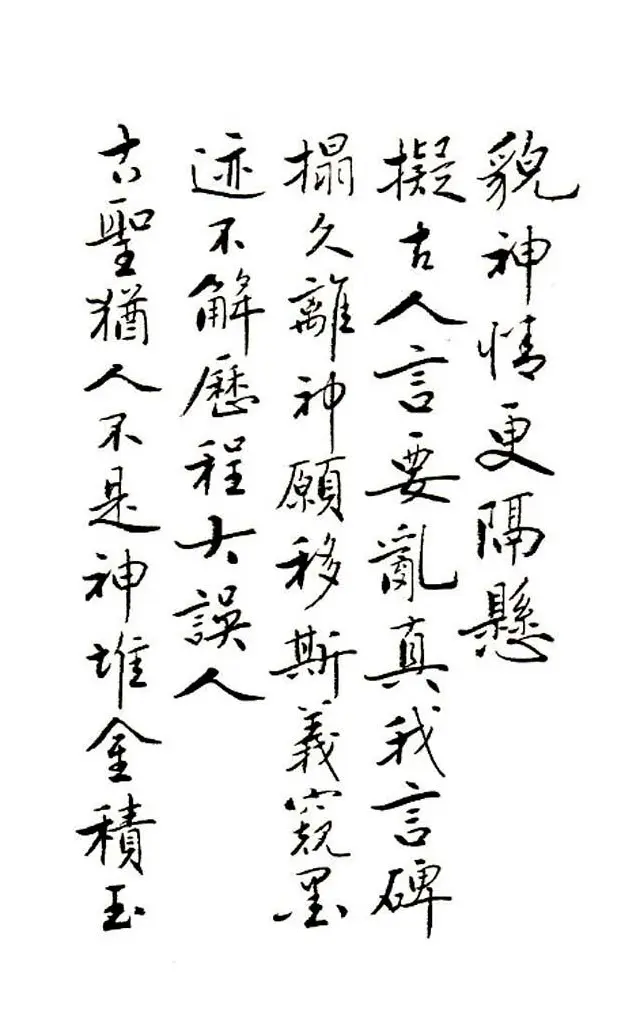 貌神情更隔懸
擬古人言要亂真我言碑
搨久離神願移斯義窺墨
迹不解歷程大誤人
古聖猶人不是神堆金積玉